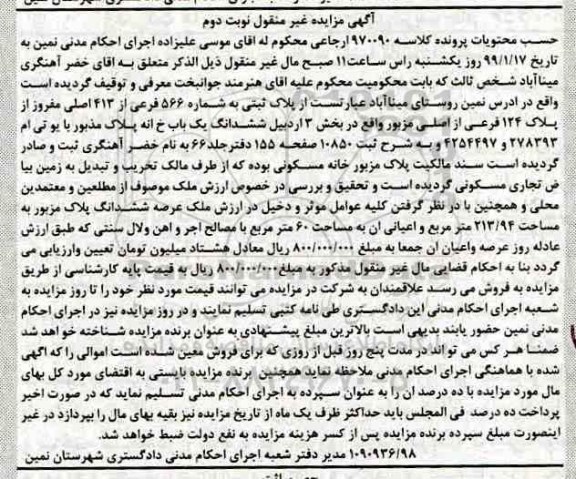 آگهی مزایده غیر منقول نوبت دوم
حسب محتویات پرونده کلاسه ۹۷۰۰۹۰ ارجاعی محکوم له اقای موسی علیزاده اجرای احکام مدنی نمین به
تاریخ ۹۹/۱/۱۷ روز یکشنبه راس ساعت۱۱ صبح مال غیر منقول ذیل الذکر متعلق به اقای خضر آهنگری
میناآباد شخص ثالث که بابت محکومیت محکوم علیه اقای هنرمند جوانبخت معرفی و توقیف گردیده است
واقع در ادرس نمین روستای میناآباد عبارتست از پلاک ثبتی به شماره ۵۶۶ فرعی از ۴۱۳ اصلی مفروز از
پلاک ۱۲۴ فرعی از اصلی مزبور واقع در بخش ۳ اردبیل ششدانگ یک باب خ انه پلاک مذبور با یو تی ام
۲۷۸۳۹۳ و ۴۲۵۴۴۹۷ و به شرح ثبت ۱۰۸۵۰ صفحه ۱۵۵ دفترجلد۶۶ به نام خضر آهنگری ثبت و صادر
گردیده است سند مالکیت پلاک مزبور خانه مسکونی بوده که از طرف مالک تخریب و تبدیل به زمین بیا
ض تجاری مسکونی گردیده است و تحقیق و بررسی در خصوص ارزش ملک موصوف از مطلعین و معتمدین
محلی و همچنین با در نظر گرفتن کلیه عوامل موثر و دخیل در ارزش ملک عرصه ششدانگ پلاک مزبور به
مساحت ۲۱۳/۹۴ متر مربع و اعیانی ان به مساحت ۶۰ متر مربع با مصالح اجر و اهن ولال سنتی که طبق ارزش
عادله روز عرصه واعیان ان جمعا به مبلغ ۸۰۰/۰۰۰/۰۰۰ ریال معادل هشتاد میلیون تومان تعیین وارزیابی می
گردد بنا به احکام قضایی مال غیر منقول مذکور به مبلغ۸۰۰/۰۰۰/۰۰۰ ریال به قیمت پایه کارشناسی از طریق
مزایده به فروش می رسد علاقمندان به شرکت در مزایده می توانند قیمت مورد نظر خود را تا روز مزایده به
شعبه اجرای احکام مدنی این دادگستری طی نامه کتبی تسلیم نمایند و در روز مزایده نیز در اجرای احکام
مدنی نمین حضور یابند بدیهی است بالاترین مبلغ پیشنهادی به عنوان برنده مزایده شناخته خو اهد شد
ضمنا هر کس می تواند در مدت پنج روز قبل از روزی که برای فروش معین شده است اموالی را که اگهی
شده با هماهنگی اجرای احکام مدنی ملاحظه نماید همچنین برنده مزایده بایستی به اقتضای مورد کل بهای
مال مورد مزایده با ده درصد ان را به عنوان سپرده به اجرای احکام مدنی تسلیم نماید که در صورت اخیر
پرداخت ده درصد فی المجلس باید حداکثر ظرف یک ماه از تاریخ مزایده نیز بقیه بهای مال را بپردازد در غیر
اینصورت مبلغ سپرده برنده مزایده پس از کسر هزینه مزایده به نفع دولت ضبط خواهد شد.
۱۰۹۰۹۳۶/۹۸ مدیر دفتر شعبه اجرای احکام مدنی دادگستری شهرستان نمین